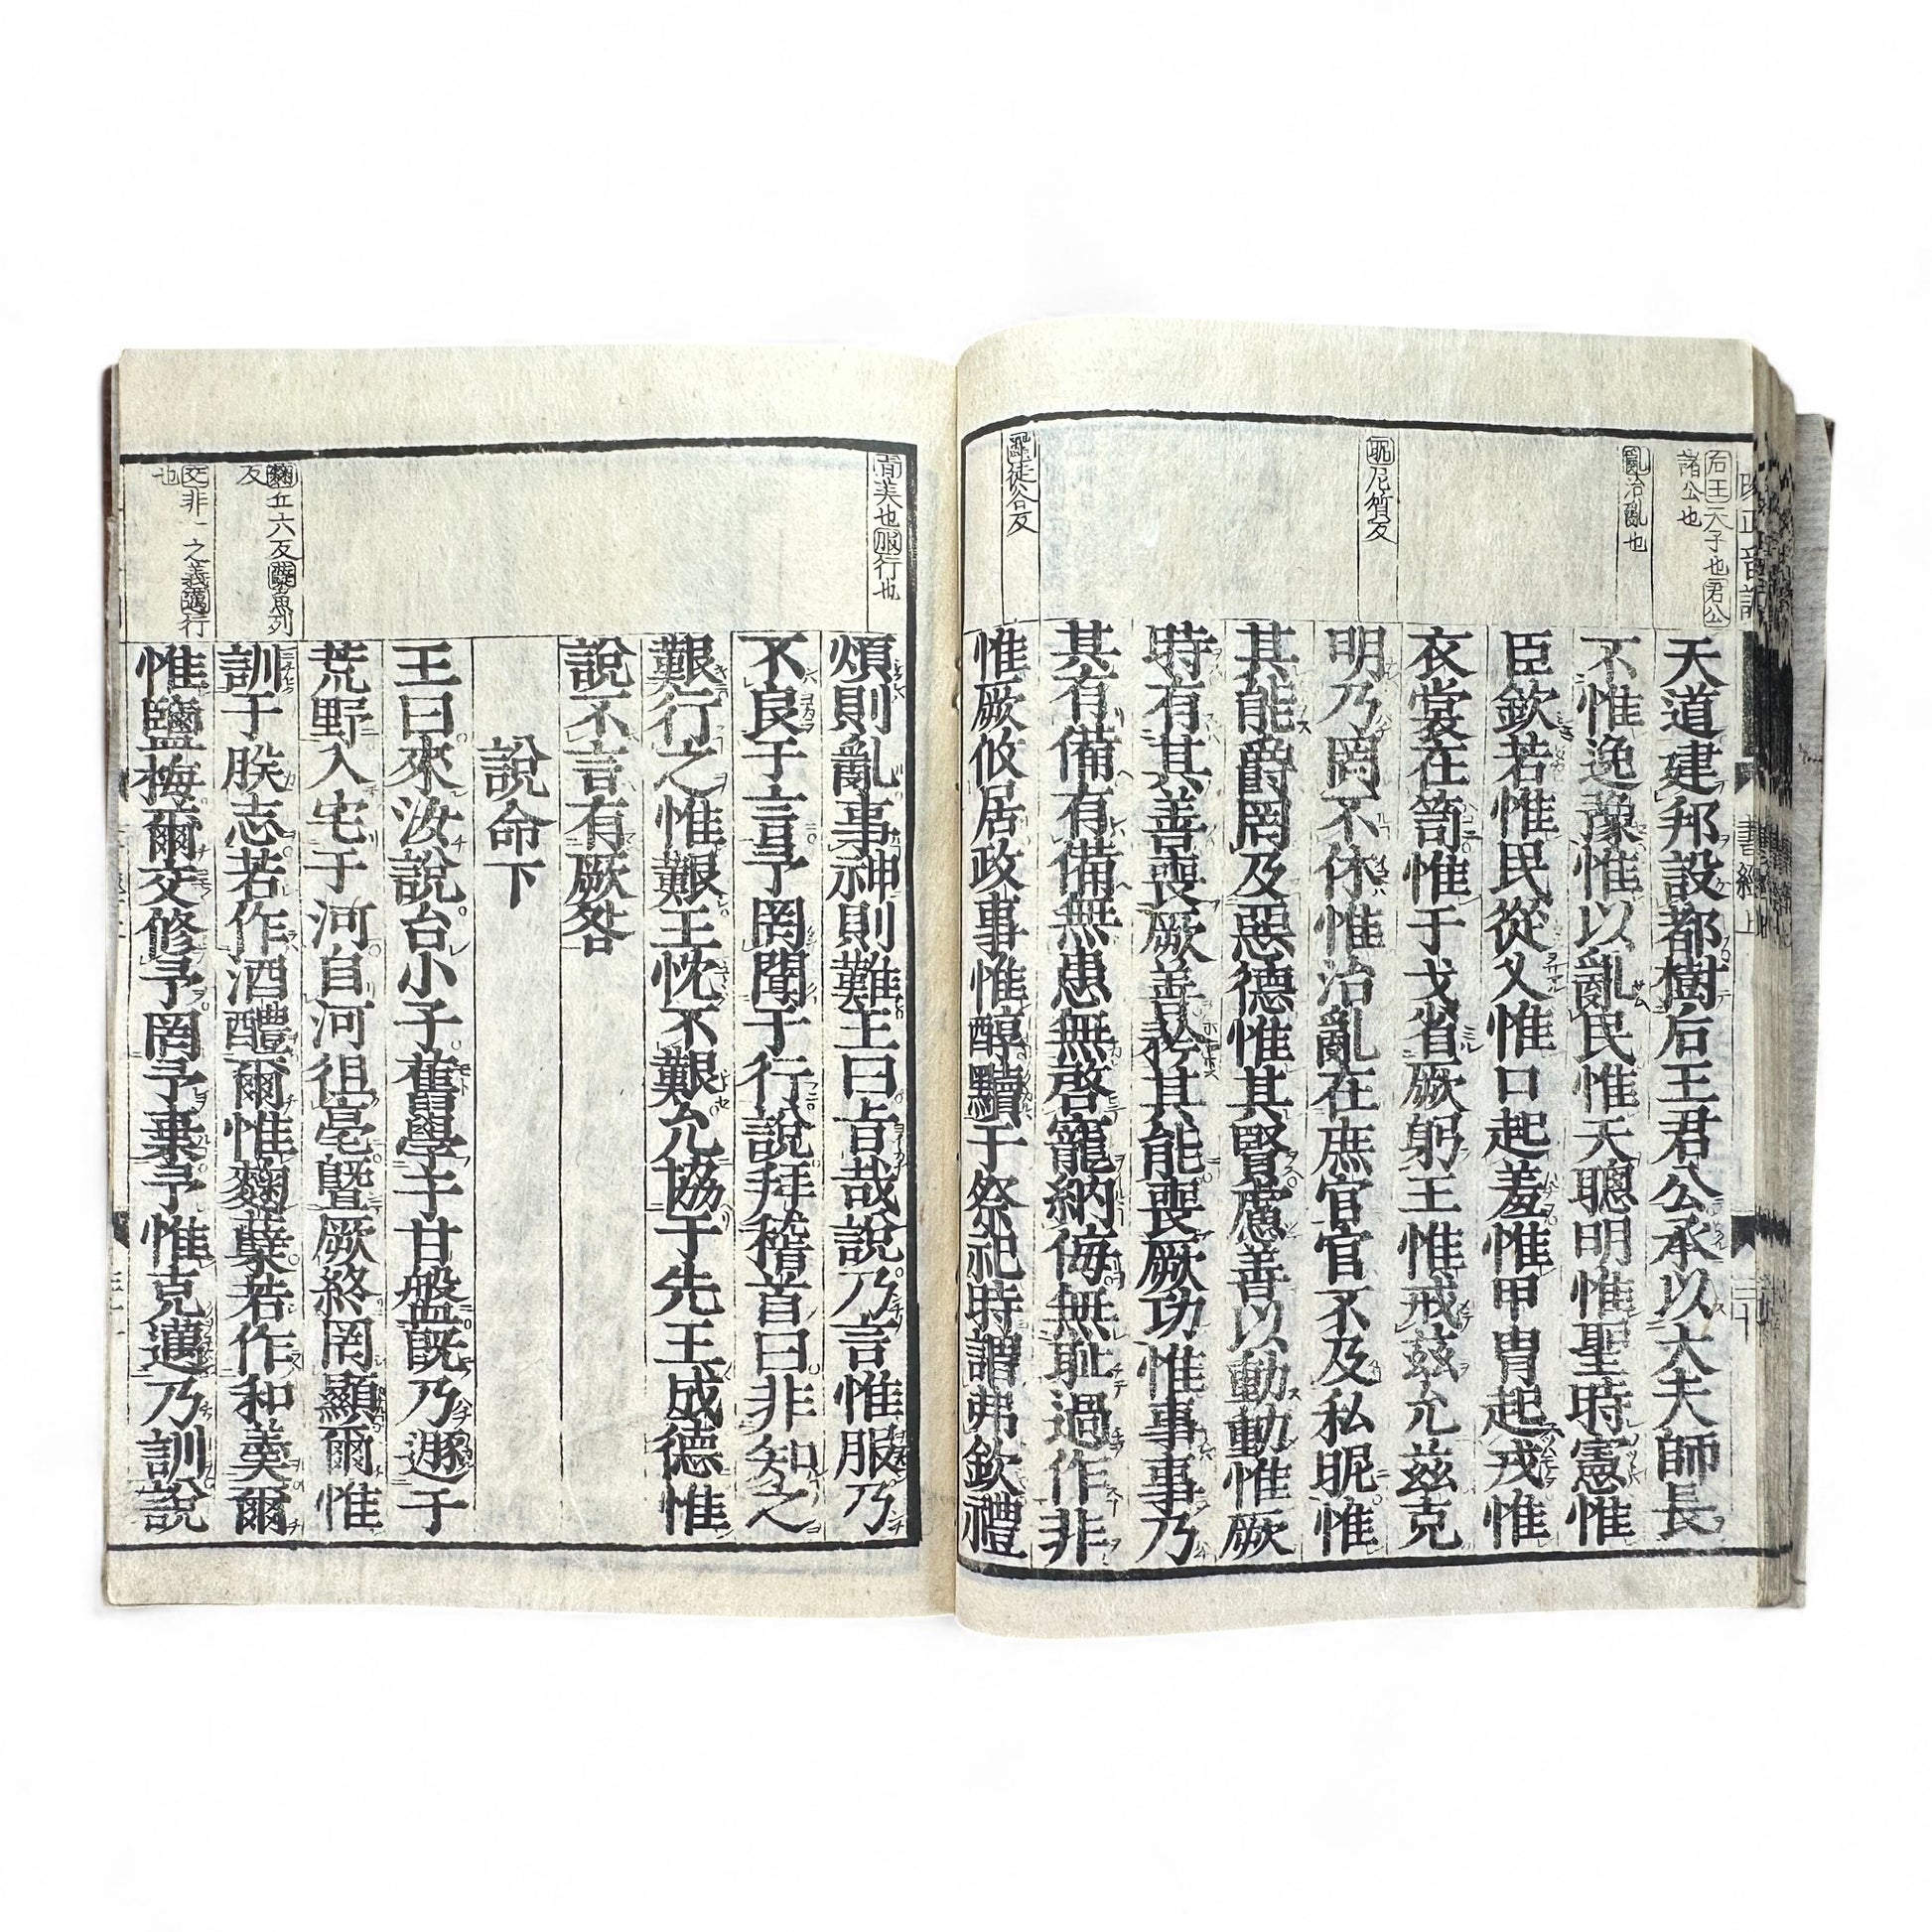 后王天子也君公
諸公也
亂治亂也
昵尼質反
黷徒谷反
天道建邦設都樹后王君公承以大夫師長
不惟逸豫惟以亂民惟天聰明惟聖時憲惟
臣欽若惟民從乂惟口起羞惟甲冑起戎惟
衣裳在笥惟干戈省厥躬王惟戒茲允茲克
明乃罔不休惟治亂在庶官官不及私昵惟
其能爵罔及惡德惟其賢慮善以動動惟厥
時有其善喪厥善矜其能喪厥功惟事事乃
其有備有備無患無啓寵納侮無恥過作非
惟厥攸居政事惟醇黷于祭祀時謂弗欽禮
書經上
三十
旨美也服行也
麴丘六反糱魚列
反
交非一之義邁行
也
煩則亂事神則難王曰旨哉說乃言惟服乃
不良于言予罔聞于行說拜稽首曰非知之
艱行之惟艱王忱不艱允協于先王成德惟
說不言有厥咎
說命下
王曰來汝說台小子舊學于甘盤旣乃遯于
荒野入宅于河自河徂亳曁厥終罔顯爾惟
訓于朕志若作酒醴爾惟麴糱若作和羹爾
惟鹽梅爾交修予罔予棄予惟克邁乃訓說